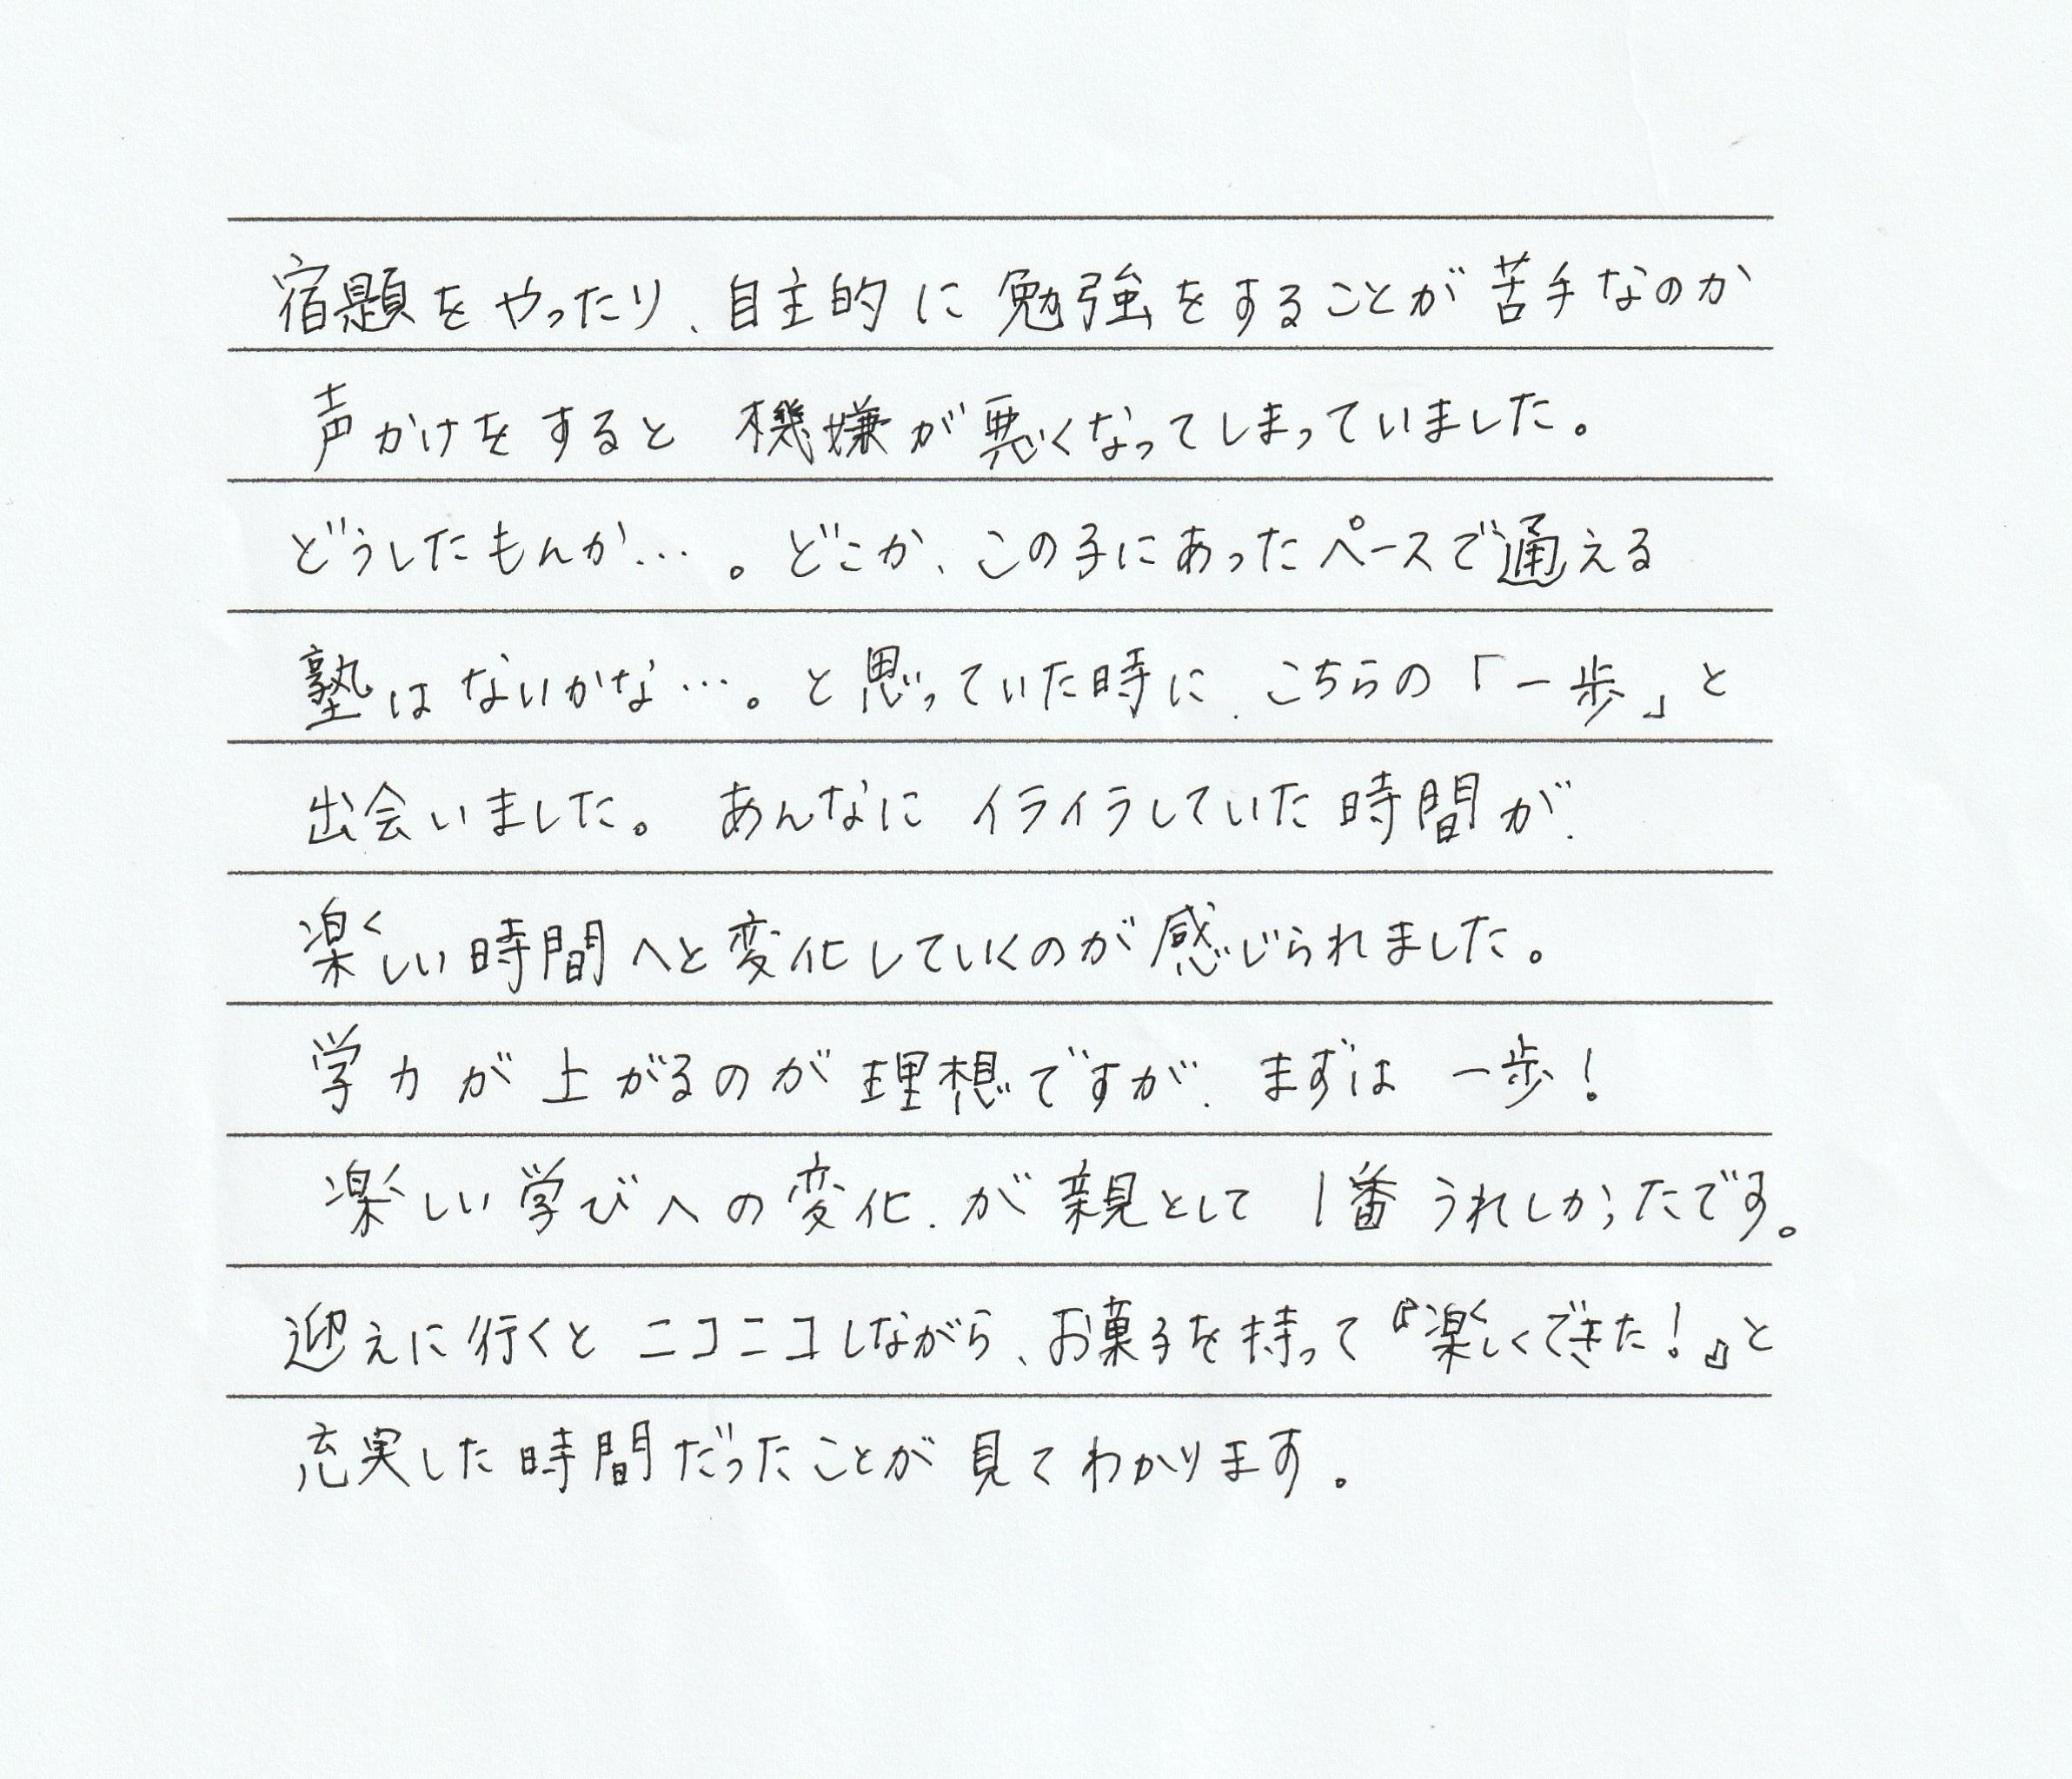 宿題をやったり、自主的に勉強をすることが苦手なのか
声かけをすると 機嫌が悪くなってしまっていました。
どうしたもんか…。どこか、この子にあったペースで通える
塾はないかな…。と思っていた時に、こちらの「一歩」と
出会いました。 あんなに イライラしていた時間が、
楽しい時間へと変化していくのが感じられました。
学力が上がるのが理想ですが、まずは 一歩！
楽しい学びへの変化、が親として 1番うれしかったです。
迎えに行くと ニコニコしながら、お菓子を持って『楽しくできた！』と
充実した時間だったことが見てわかります。